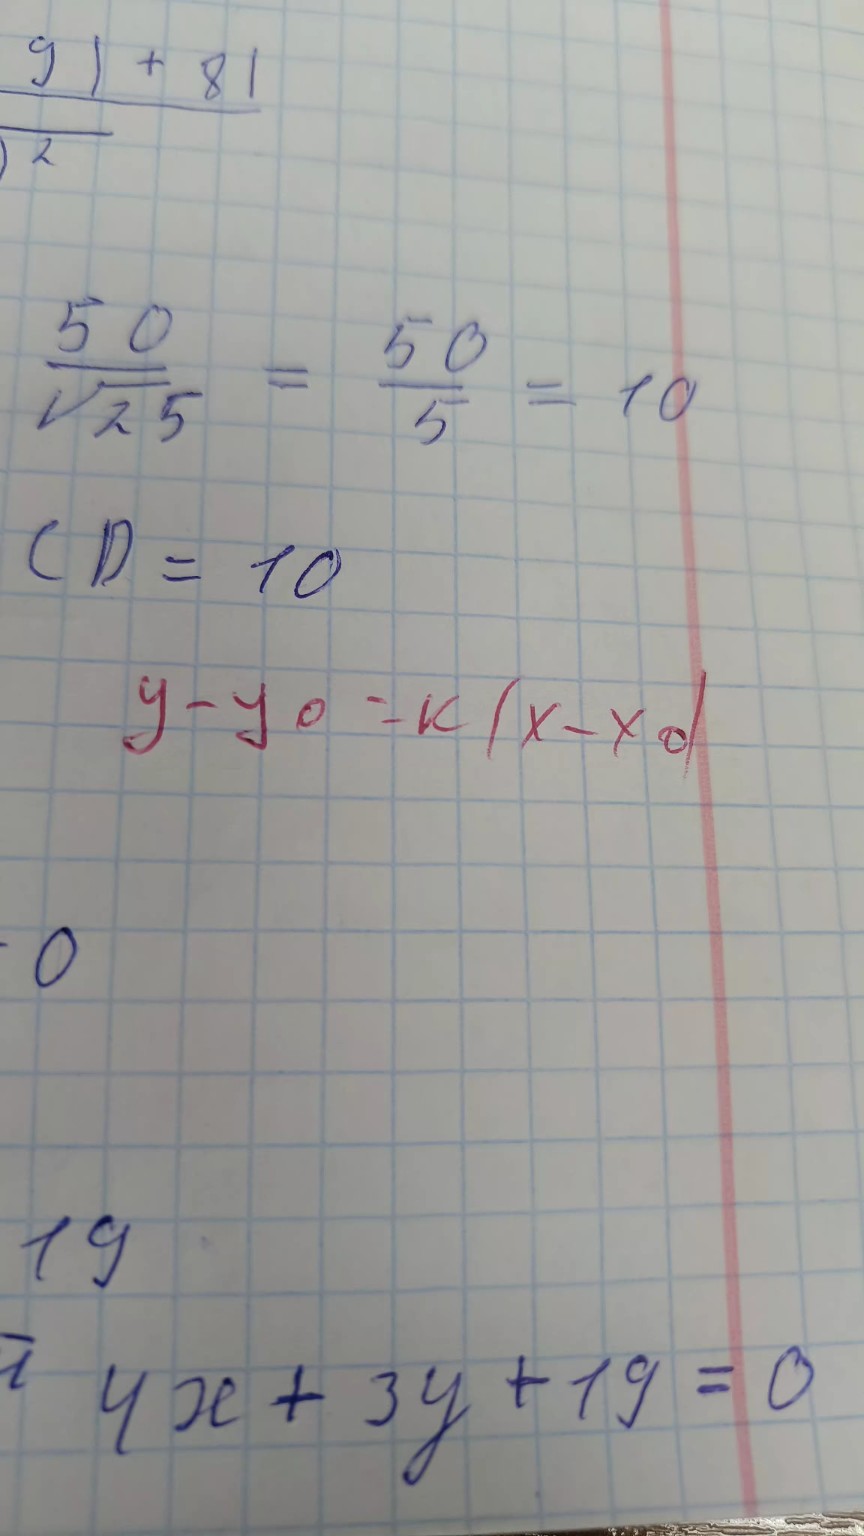 9) + 81
) 2
50 / √25 = 50 / 5 = 10
CD = 10
y - y0 = k (x - x0)
- 0
19
4x + 3y + 19 = 0